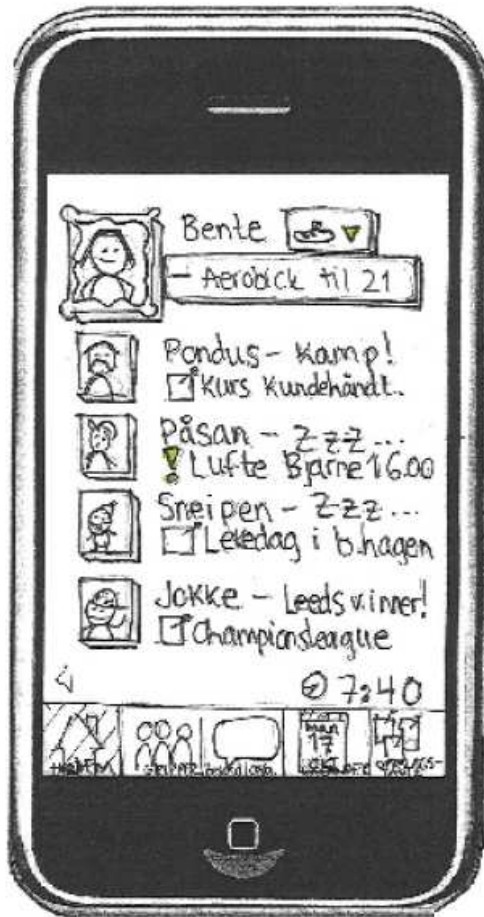 Bente
- Aerobick til 21
Pondus - Kamp!
Kurs Kundehåndt.
Påsan - zzz...
! Lufte Bjarne 16.00
Sneipen - zzz...
Lekedag i b.hagen
Jokke - Leeds vinner!
Championsleague
7:40
man
17